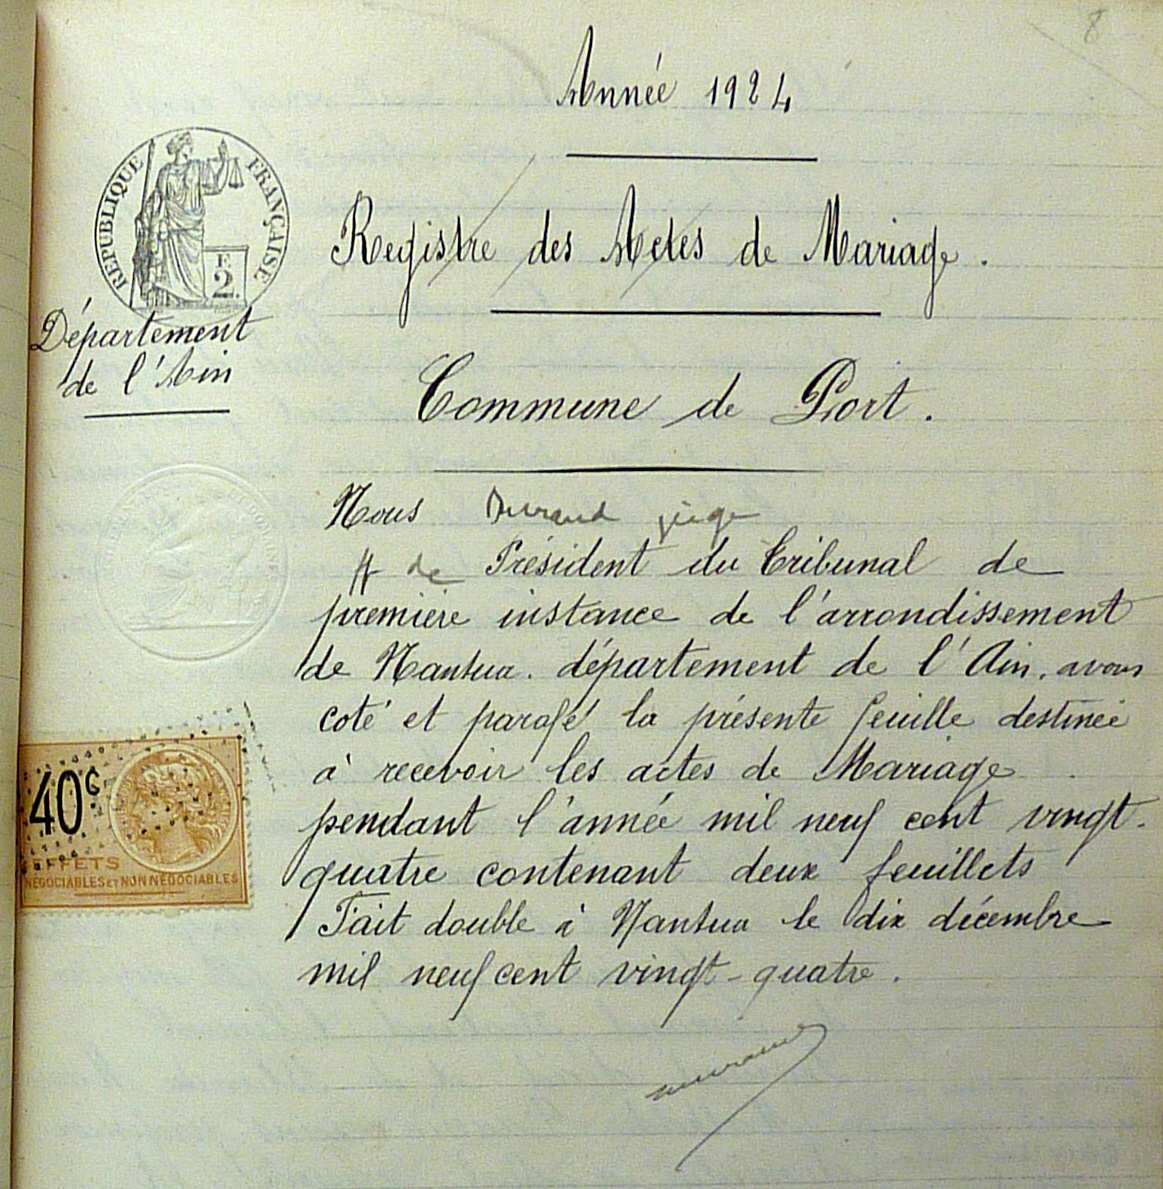 8
Année 1924
RÉPUBLIQUE FRANÇAISE
F
2.
Registre des Actes de Mariage.
Département
de l'Ain
Commune de Port.
Nous Durand juge
ff de Président du Tribunal de
première instance de l'arrondissement
de Nantua. département de l'Ain, avons
coté et parafé la présente feuille destinée
à recevoir les actes de Mariage
pendant l'année mil neuf cent vingt-
quatre contenant deux feuillets
Fait double à Nantua le dix décembre
mil neuf cent vingt-quatre.
40c
EFFETS
NÉGOCIABLES ET NON NÉGOCIABLES
Durand